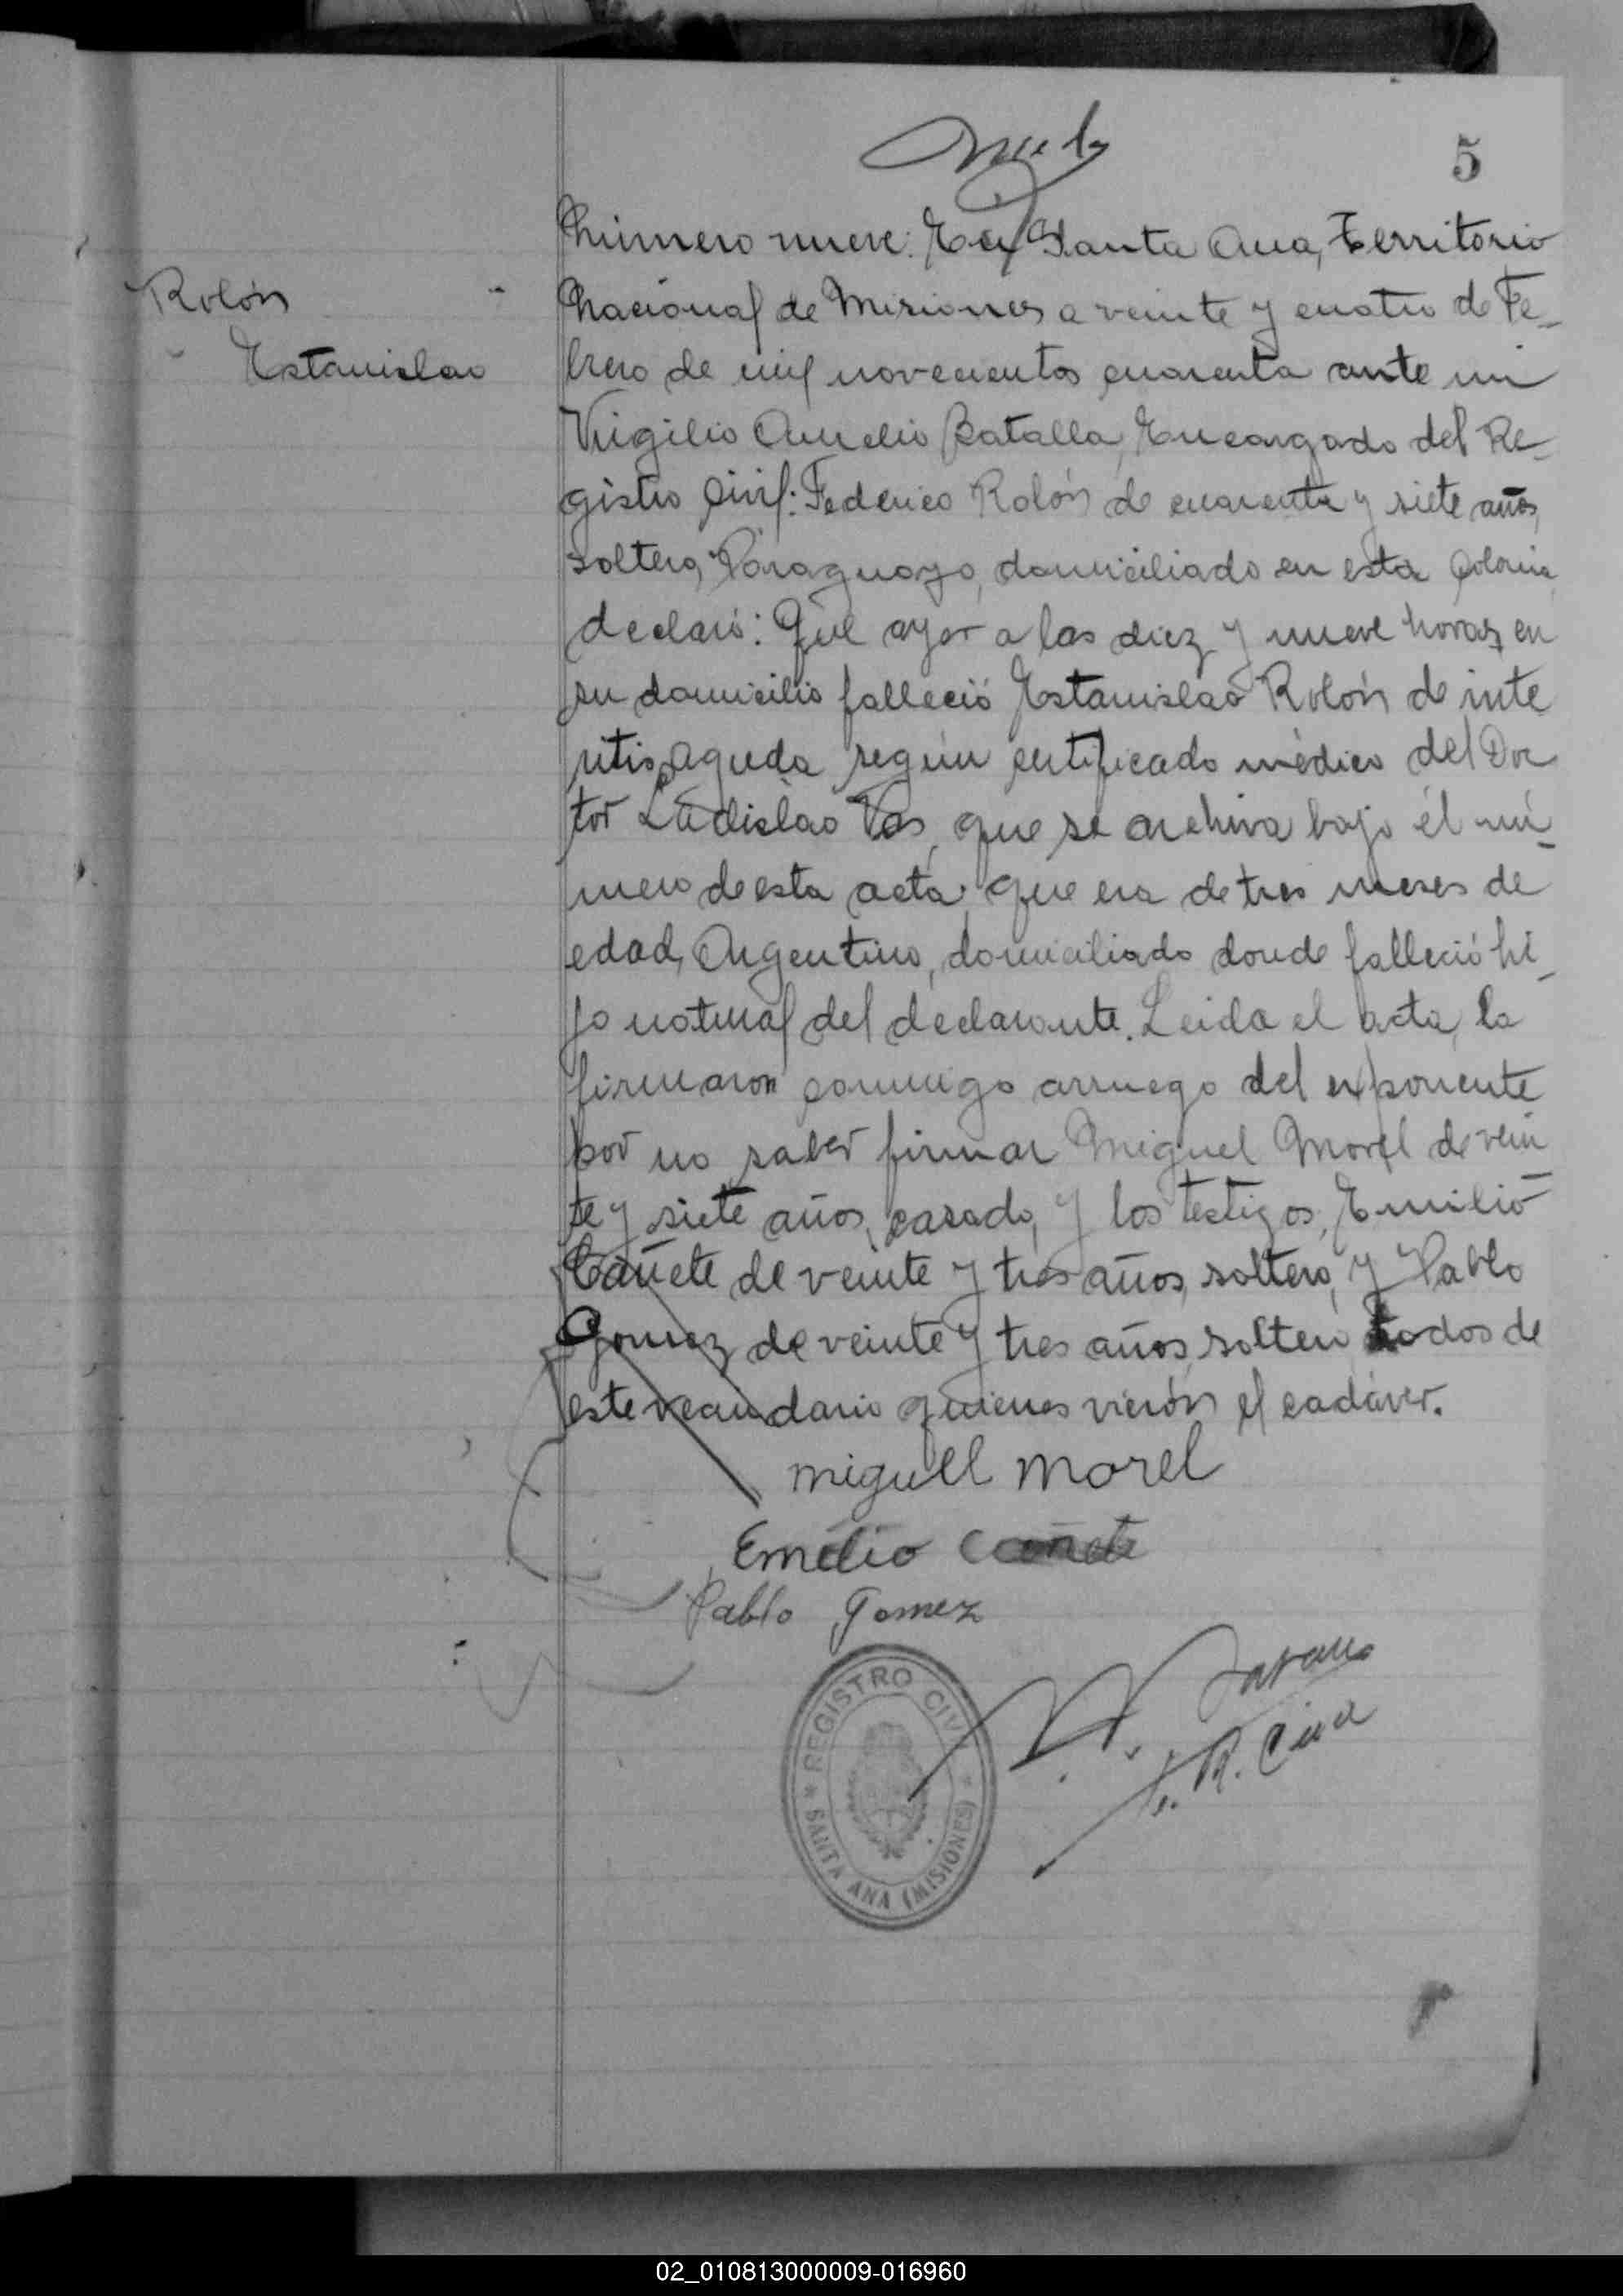 5
Número nueve: En Santa Ana, Territorio
Rolón
Nacional de Misiones a veinte y cuatro de Fe-
Estanislao
brero de mil novecientos cuarenta ante mi
Virgilio Aurelio Batalla, Encargado del Re-
gistro Civil: Federico Rolón de cuarenta y siete años,
soltero, Paraguayo, domiciliado en esta Colonia,
declaró: Que ayer a las diez y nueve horas, en
su domicilio falleció Estanislao Rolón de inte
ritis aguda según certificado médico del Doc
tor Ladislao Vas, que se archiva bajo él nú-
mero de esta acta, que era de tres meses de
edad, Argentino, domiciliado donde falleció hi-
jo natural del declarante. Leida el acta, la
firmaron conmigo arruego del exponente
por no saber firmar Miguel Morel de vein
te y siete años, casado, y los testigos, Emilio
Cañete de veinte y tres años, soltero, y Pablo
Gomez de veinte y tres años, soltero todos de
este vecindario quienes vierón el cadáver.
miguel morel
Emilio Cañete
Pablo Gomez
REGISTRO CIVIL
SANTA ANA (MISIONES)
02_010813000009-016960